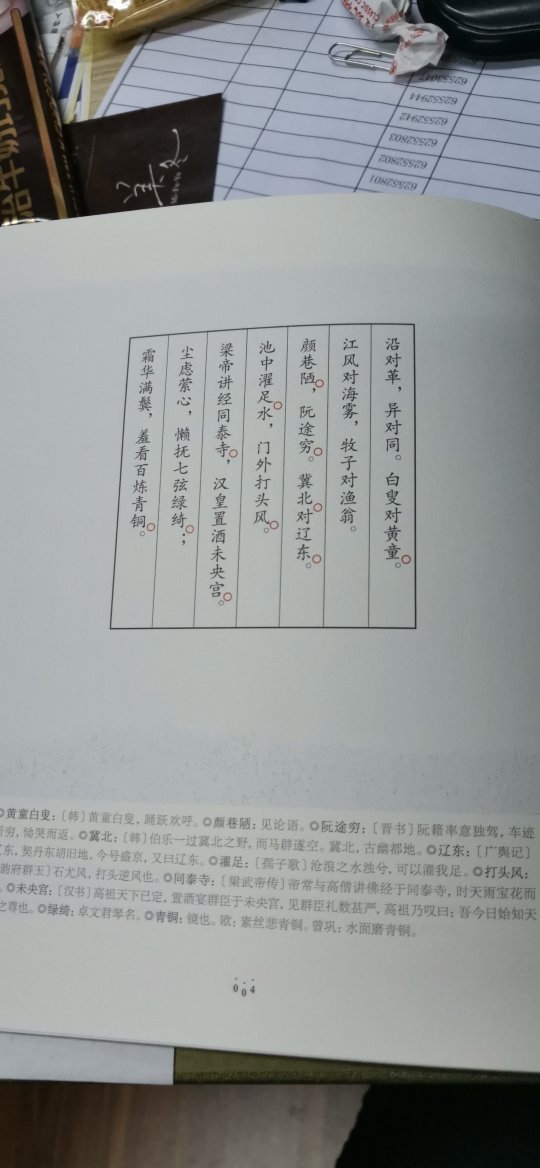 62552944
62552942
62552803
62552802
62552801
沿对革，异对同。白叟对黄童。
江风对海雾，牧子对渔翁。
颜巷陋，阮途穷。冀北对辽东。
池中濯足水，门外打头风。
梁帝讲经同泰寺，汉皇置酒未央宫。
尘虑萦心，懒抚七弦绿绮；
霜华满鬓，羞看百炼青铜。
◎黄童白叟：〔韩〕黄童白叟，踊跃欢呼。◎颜巷陋：见论语。◎阮途穷：〔晋书〕阮籍率意独驾，车迹
所穷，恸哭而返。◎冀北：〔韩〕伯乐一过冀北之野，而马群遂空。冀北，古幽都地。◎辽东：〔广舆记〕
辽东，契丹东胡旧地，今号盛京，又曰辽东。◎濯足：〔孺子歌〕沧浪之水浊兮，可以濯我足。◎打头风：
韵府群玉〕石尤风，打头逆风也。◎同泰寺：〔梁武帝传〕帝常与高僧讲佛经于同泰寺，时天雨宝花而
。◎未央宫：〔汉书〕高祖天下已定，置酒宴群臣于未央宫，见群臣礼数甚严，高祖乃叹曰：吾今日始知天
之尊也。◎绿绮：卓文君琴名。◎青铜：镜也。欧：素丝悲青铜。曾巩：水面磨青铜。
004